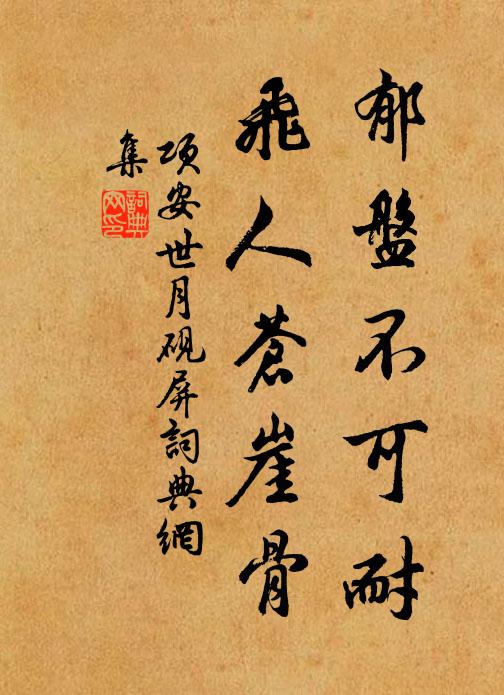 郁盤不可耐
飛人蒼崖骨
項安世月硯屏詞典網
集
詞典網印